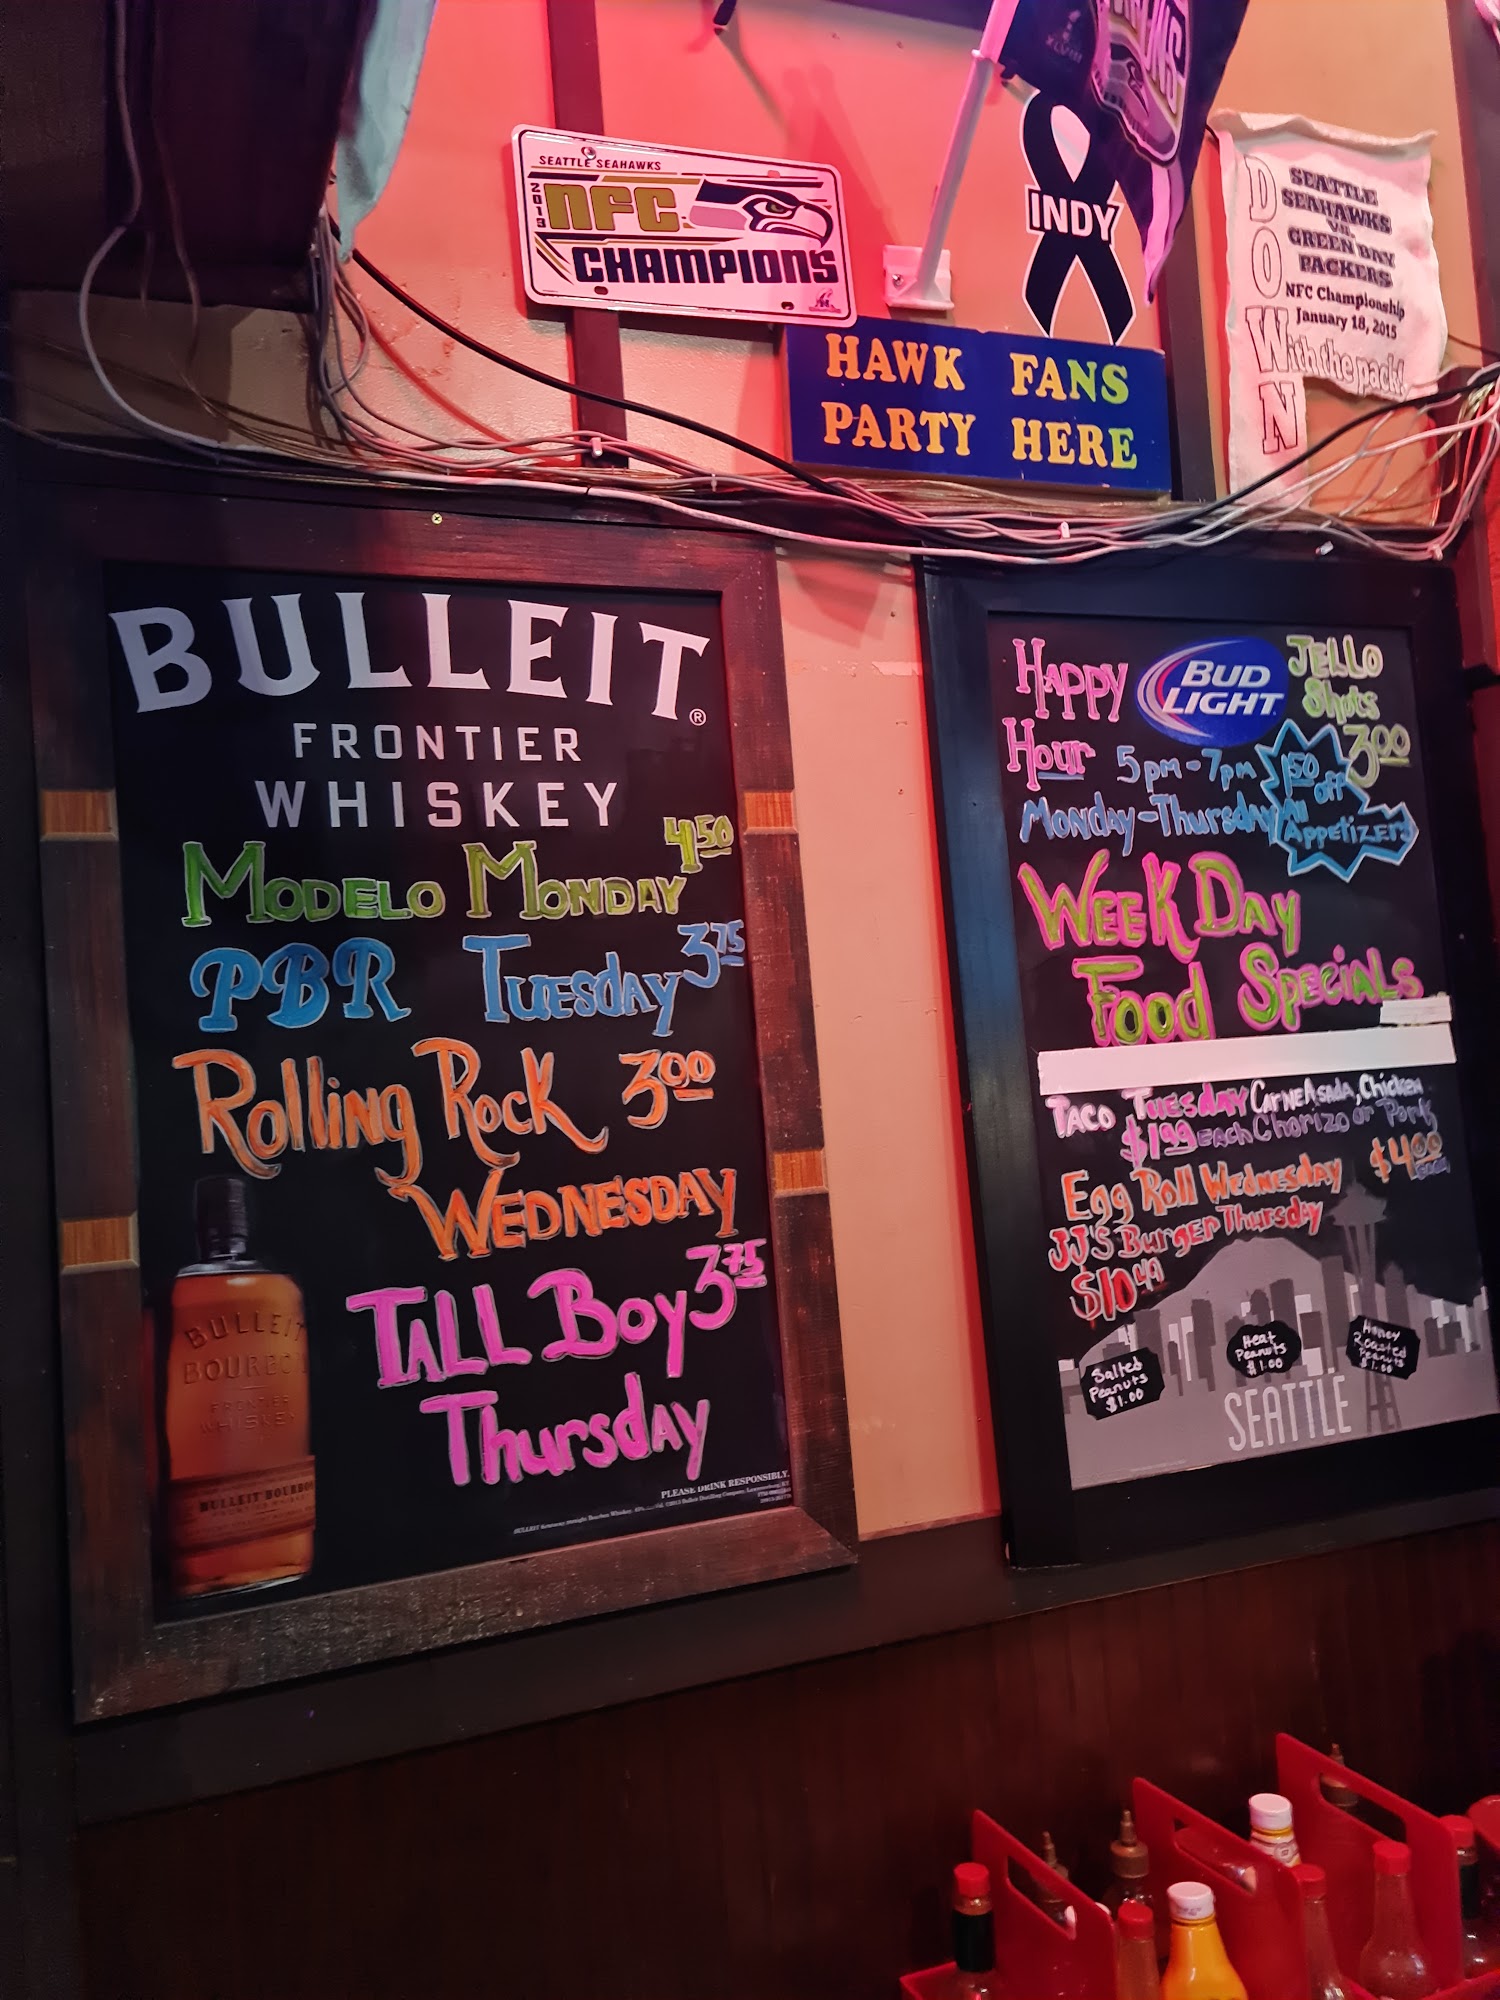 SEATTLE SEAHAWKS
2013
NFC
CHAMPIONS
XLVIII
INDY
HAWK FANS
PARTY HERE
DOWN
SEATTLE
SEAHAWKS
VS.
GREEN BAY
PACKERS
NFC Championship
January 18, 2015
With the pack!
BULLEIT®
FRONTIER
WHISKEY
MODELO MONDAY 4.50
PBR TUESDAY 3.75
Rolling Rock 3.00
WEDNESDAY
TALL BOY 3.75
Thursday
BULLEIT
BOURBON
FRONTIER
WHISKEY
BULLEIT BOURBON
PLEASE DRINK RESPONSIBLY.
HAPPY
Hour
BUD
LIGHT
JELLO
Shots
3.00
5pm-7pm
Monday-Thursday
1.50
off
All
Appetizers
WEEK DAY
Food Specials
TACO TUESDAY Carne Asada, Chicken
$1.99 EACH Chorizo or Pork
Egg Roll Wednesday $4.00
JJ'S Burger Thursday
$10.49
Salted
Peanuts
$1.00
Heat
Peanuts
$1.00
Honey
Roasted
Peanuts
$1.00
SEATTLE